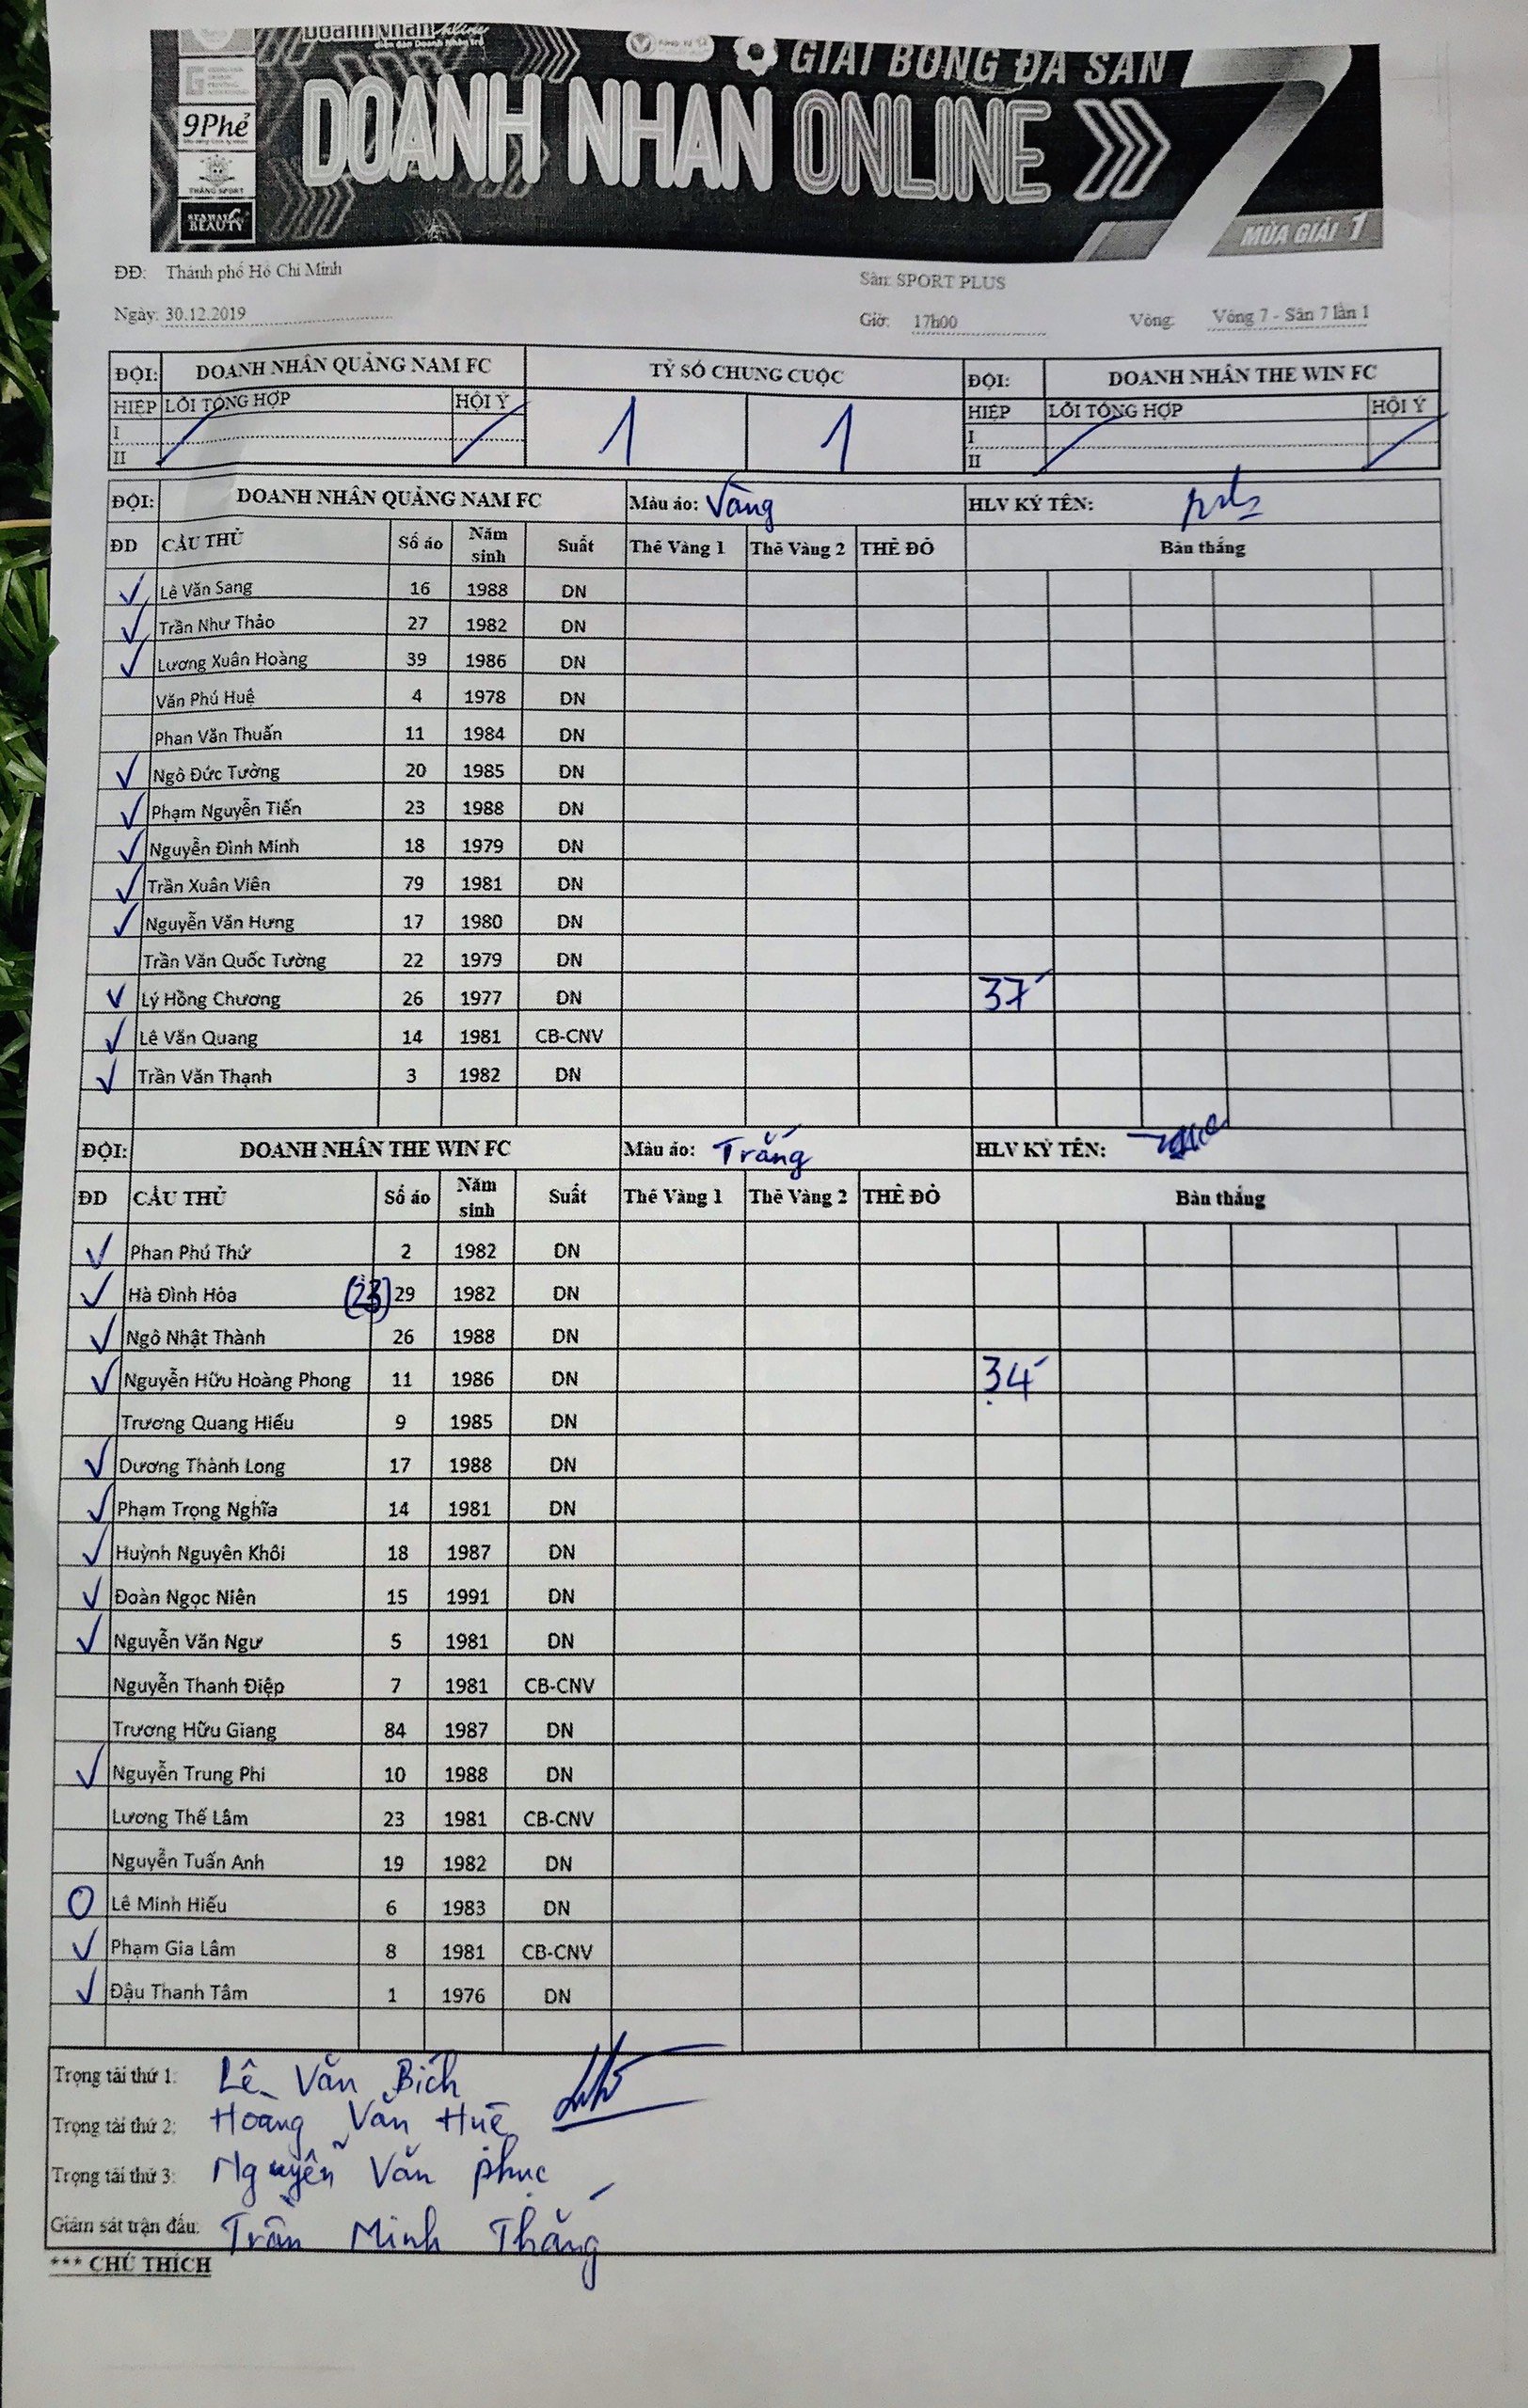 Doanh Nhân Online
diễn đàn Doanh Nhân trẻ
GIẢI BÓNG ĐÁ SÂN 7
9Phẻ
DOANH NHÂN ONLINE
THĂNG SPORT
BEAUTY
MÙA GIẢI 1
ĐĐ: Thành phố Hồ Chí Minh
Sân: SPORT PLUS
Ngày: 30.12.2019 Giờ: 17h00 Vòng: Vòng 7 - Sân 7 lần 1
ĐỘI: DOANH NHÂN QUẢNG NAM FC TỶ SỐ CHUNG CUỘC ĐỘI: DOANH NHÂN THE WIN FC
HIỆP LỖI TỔNG HỢP HỘI Ý 1 1 HIỆP LỖI TỔNG HỢP HỘI Ý
I I
II II
ĐỘI: DOANH NHÂN QUẢNG NAM FC Màu áo: Vàng HLV KÝ TÊN:
ĐD CẦU THỦ Số áo Năm sinh Suất Thẻ Vàng 1 Thẻ Vàng 2 THẺ ĐỎ Bàn thắng
✓ Lê Văn Sang 16 1988 DN
✓ Trần Như Thảo 27 1982 DN
✓ Lương Xuân Hoàng 39 1986 DN
Văn Phú Huệ 4 1978 DN
Phan Văn Thuấn 11 1984 DN
✓ Ngô Đức Tường 20 1985 DN
✓ Phạm Nguyễn Tiến 23 1988 DN
✓ Nguyễn Đình Minh 18 1979 DN
✓ Trần Xuân Viên 79 1981 DN
✓ Nguyễn Văn Hưng 17 1980 DN
Trần Văn Quốc Tường 22 1979 DN
✓ Lý Hồng Chương 26 1977 DN 37'
✓ Lê Văn Quang 14 1981 CB-CNV
✓ Trần Văn Thạnh 3 1982 DN
ĐỘI: DOANH NHÂN THE WIN FC Màu áo: Trắng HLV KÝ TÊN:
ĐD CẦU THỦ Số áo Năm sinh Suất Thẻ Vàng 1 Thẻ Vàng 2 THẺ ĐỎ Bàn thắng
✓ Phan Phú Thứ 2 1982 DN
✓ Hà Đình Hòa (23) 29 1982 DN
✓ Ngô Nhật Thành 26 1988 DN
✓ Nguyễn Hữu Hoàng Phong 11 1986 DN 34'
Trương Quang Hiếu 9 1985 DN
✓ Dương Thành Long 17 1988 DN
✓ Phạm Trọng Nghĩa 14 1981 DN
✓ Huỳnh Nguyên Khôi 18 1987 DN
✓ Đoàn Ngọc Niên 15 1991 DN
✓ Nguyễn Văn Ngư 5 1981 DN
Nguyễn Thanh Điệp 7 1981 CB-CNV
Trương Hữu Giang 84 1987 DN
✓ Nguyễn Trung Phi 10 1988 DN
Lương Thế Lâm 23 1981 CB-CNV
Nguyễn Tuấn Anh 19 1982 DN
O Lê Minh Hiếu 6 1983 DN
✓ Phạm Gia Lâm 8 1981 CB-CNV
✓ Đậu Thanh Tâm 1 1976 DN
Trọng tài thứ 1: Lê Văn Bích
Trọng tài thứ 2: Hoàng Văn Huê
Trọng tài thứ 3: Nguyễn Văn Phục
Giám sát trận đấu: Trần Minh Thắng
*** CHÚ THÍCH